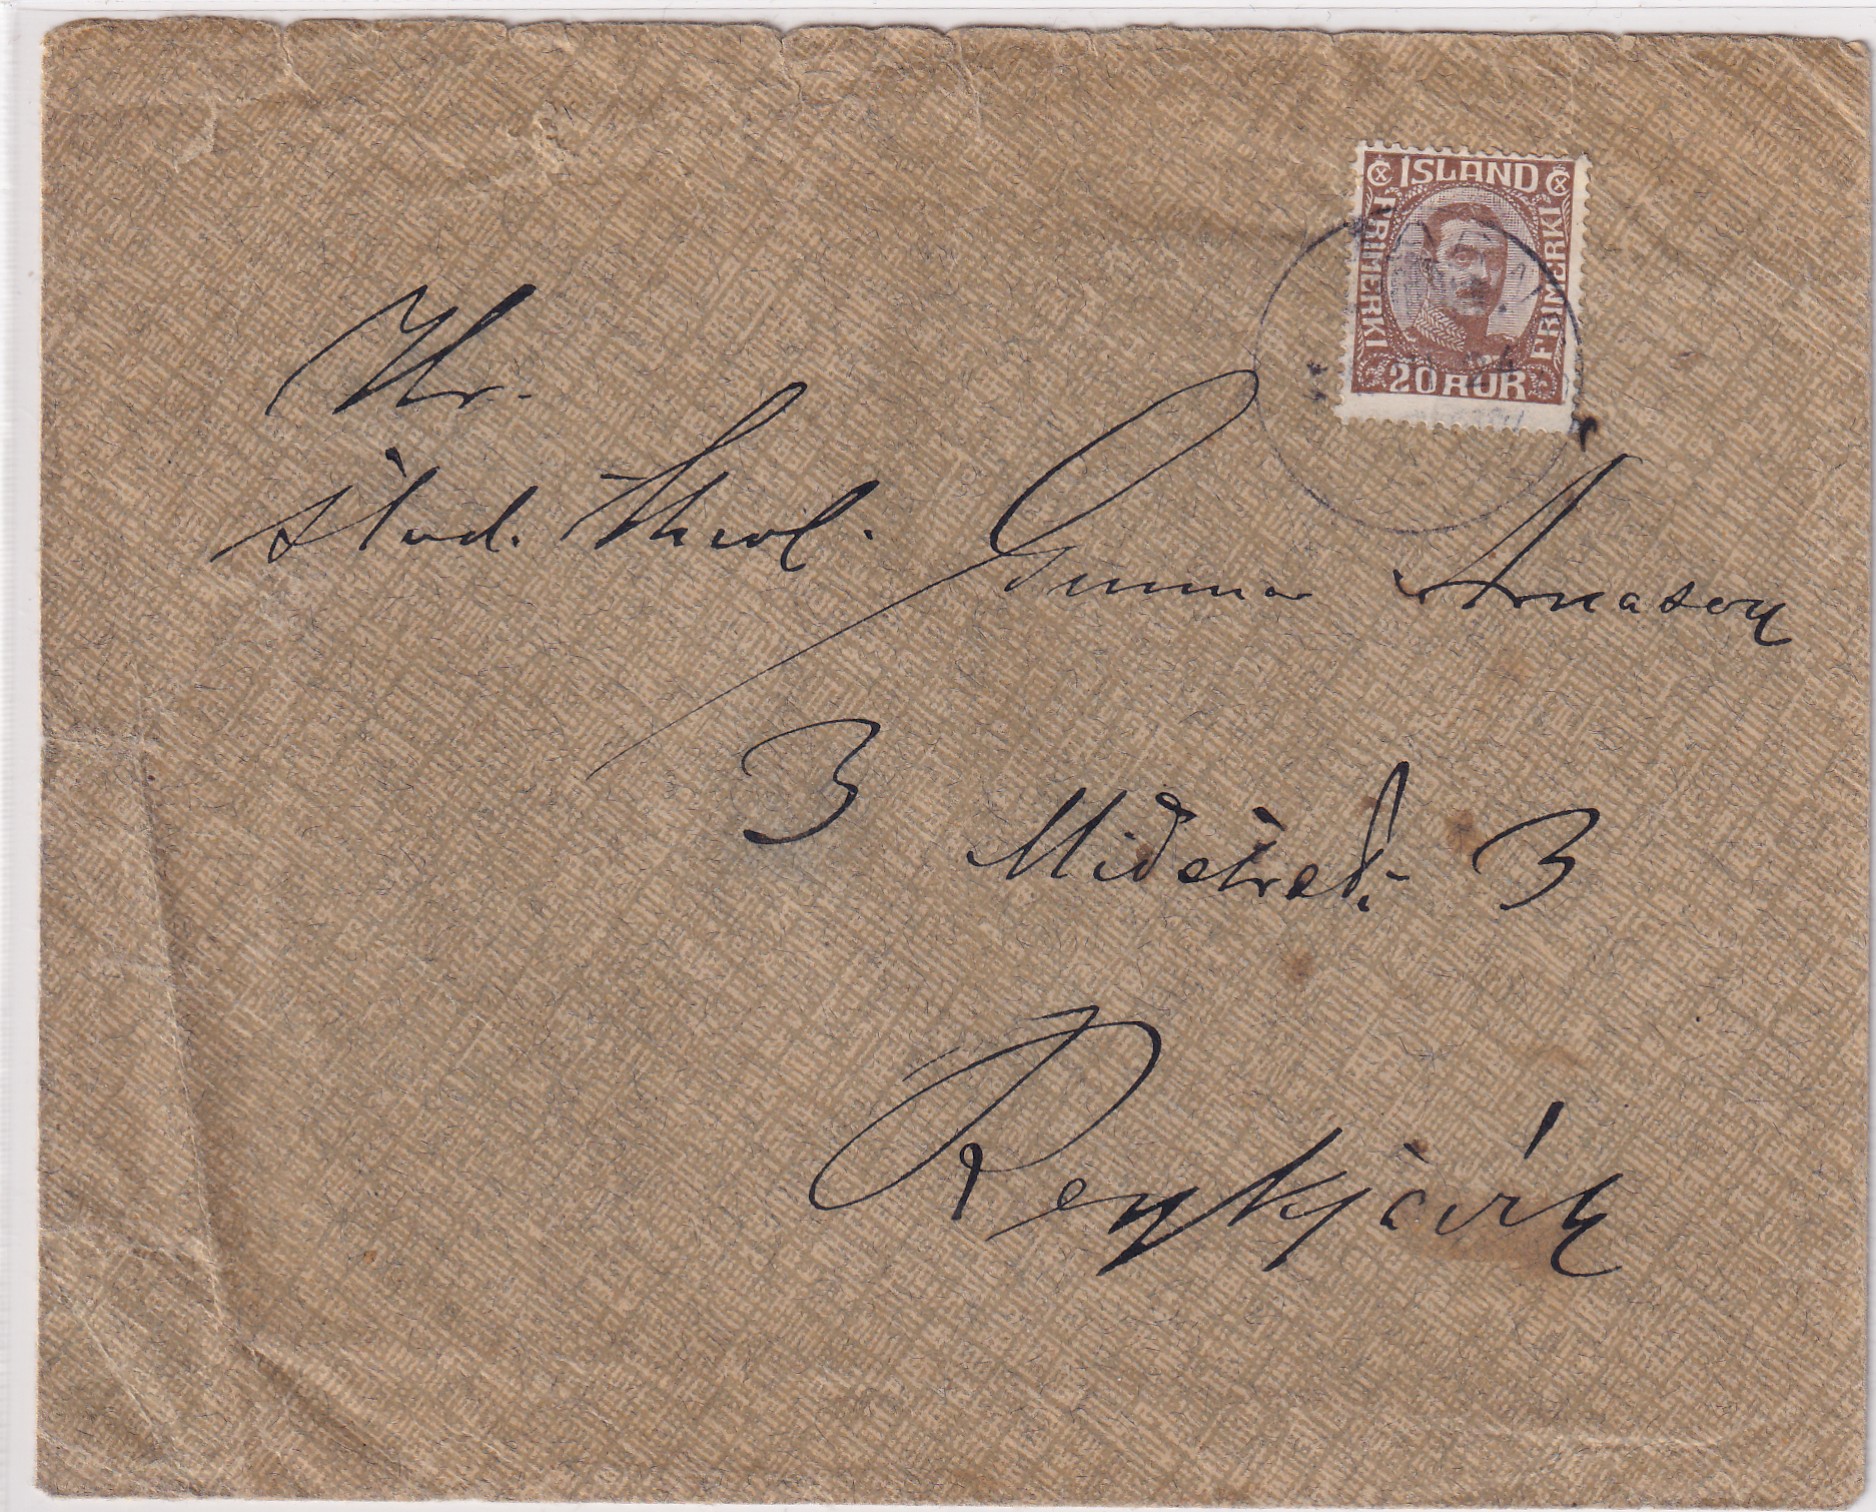 ISLAND
FRIMERKI
FRIMERKI
20 AUR
Hr.
stud. theol. Gunnar Árnason
3 Miðstræti 3
Reykjavík